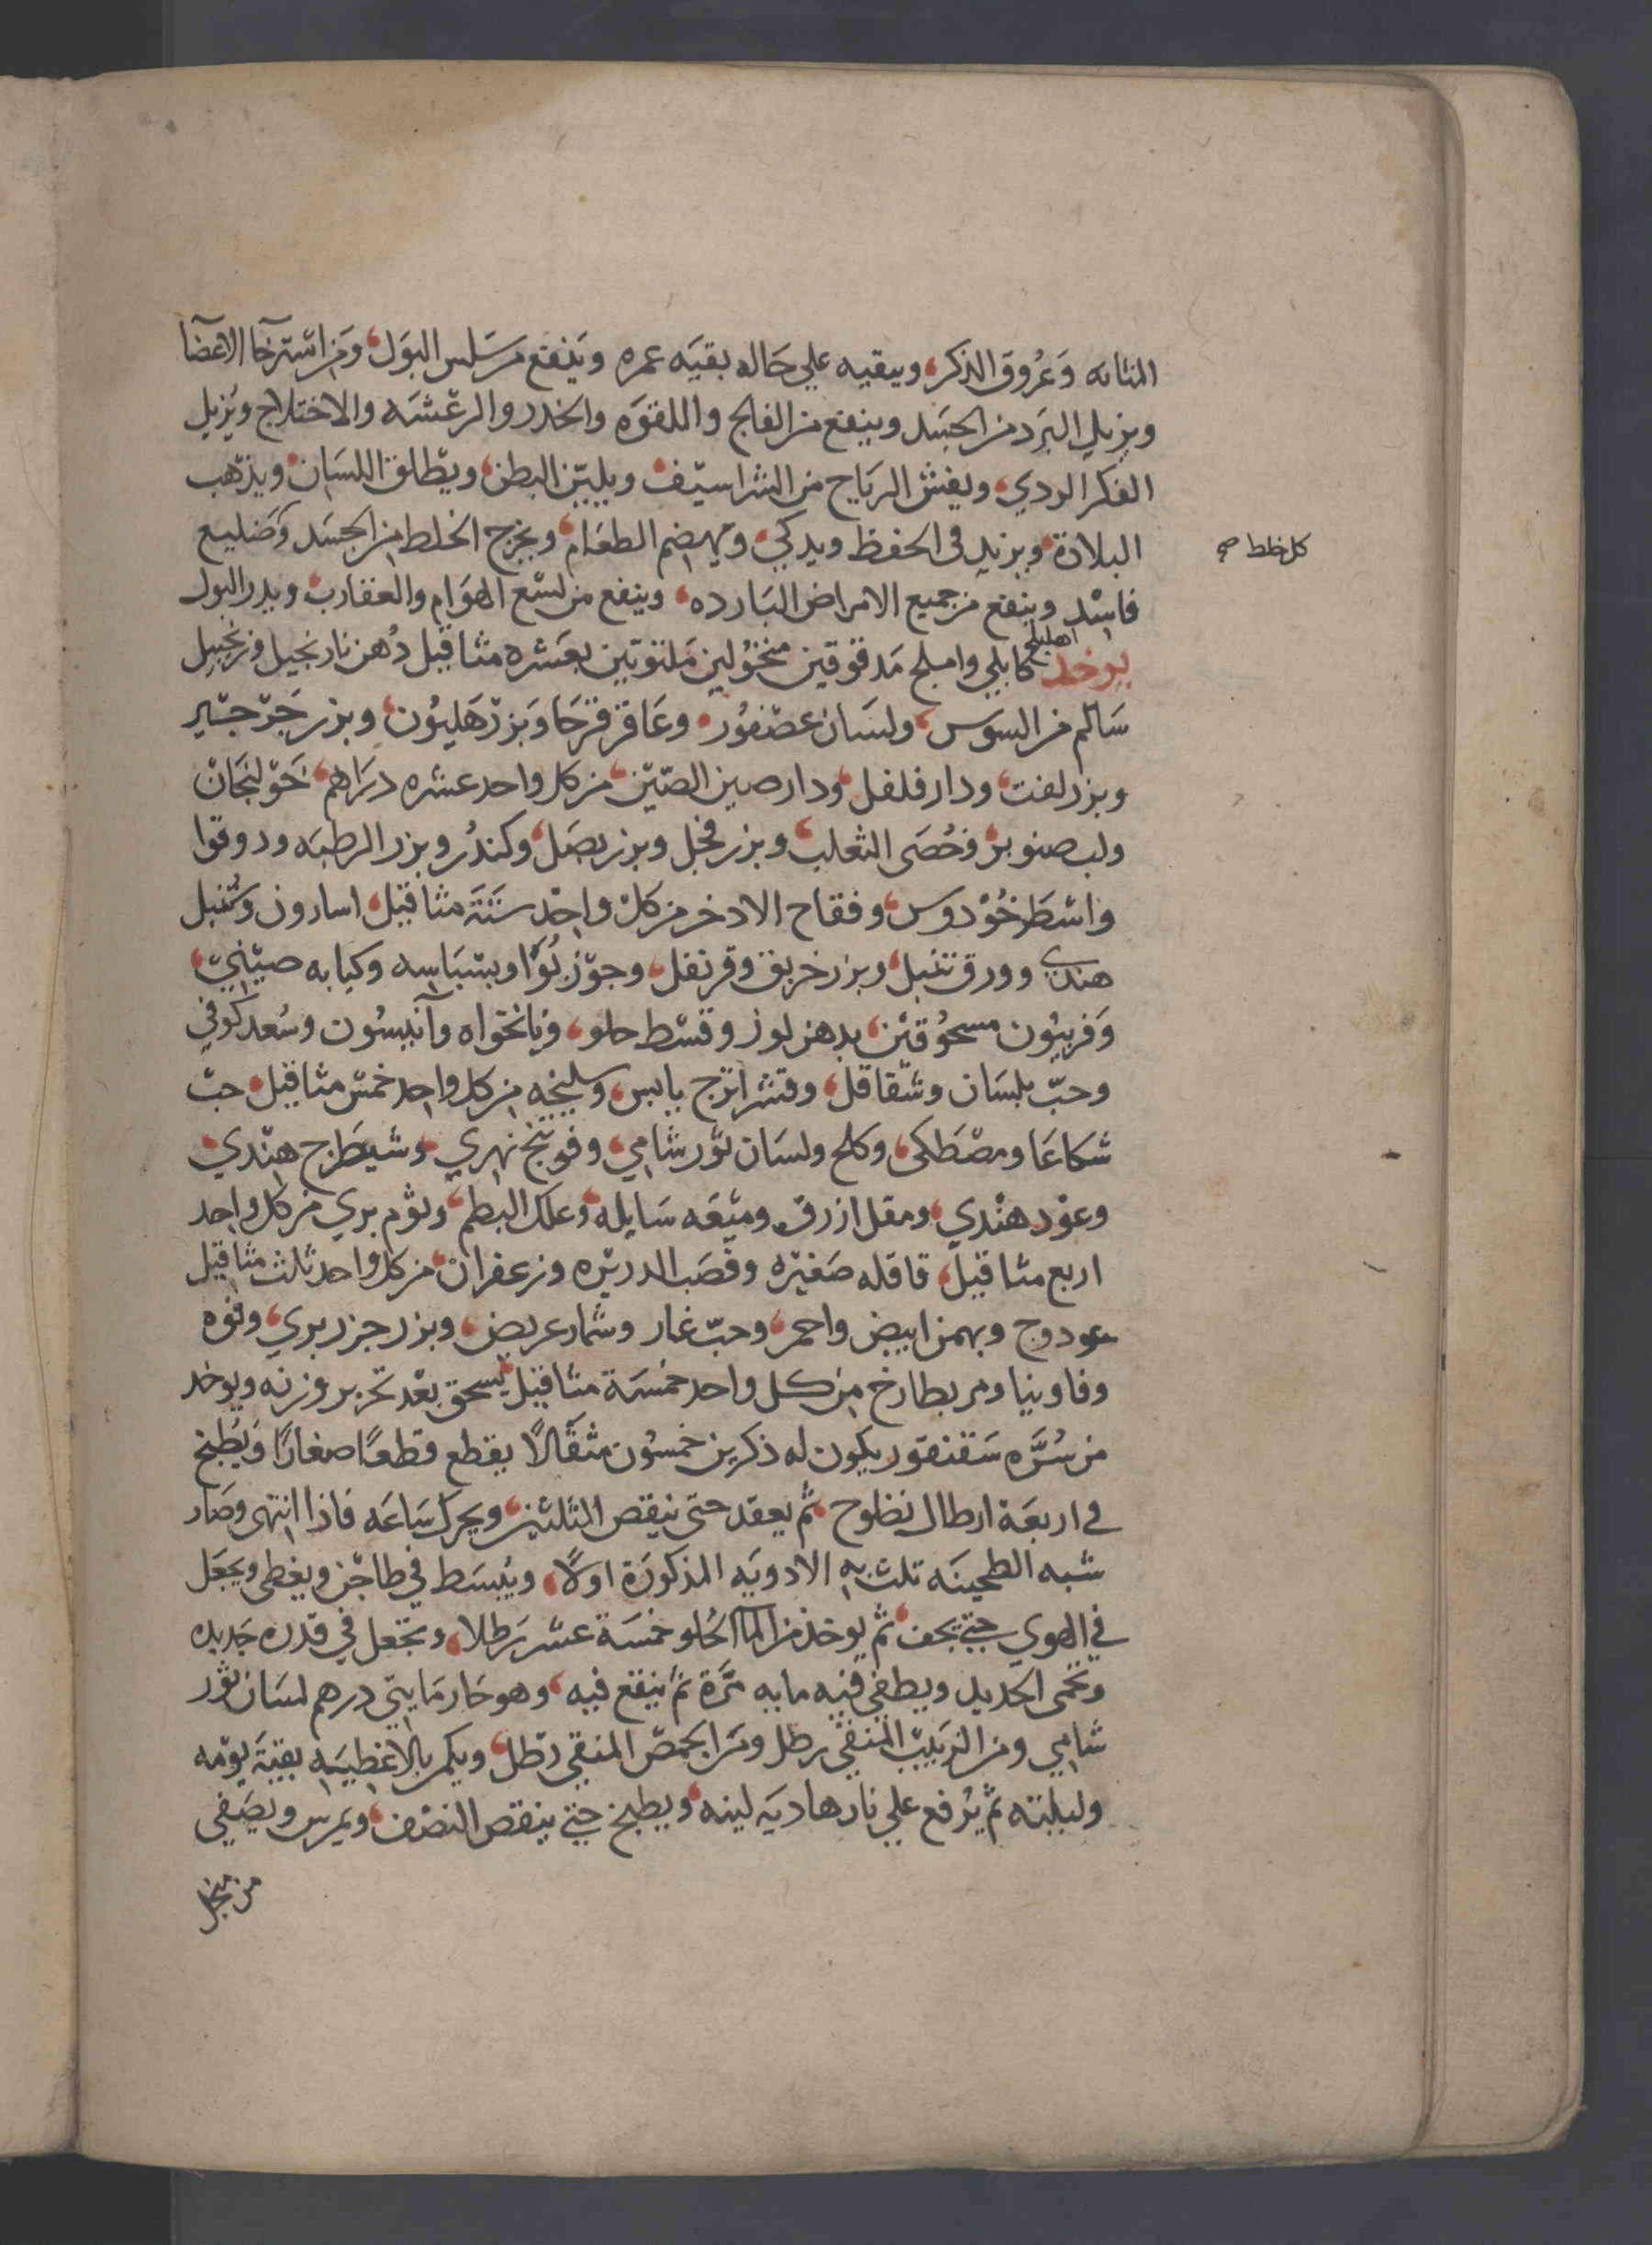 المثانه وَعُروُق الذكر، ويبقيه علي حَاله بقيَه عمره وَينفع من سَلس البَول، وَمن استرخآ الاعضآ
ويزيل البَرد من الجسَد وينفع من الفالج واللقوَه والخدر والرعْشَه والاختلاج ويُزيل
الفكر الردي، ويفش الريَاح من الشراسيْف، ويليّن البطن، ويطلق اللسَان، ويذهب
البلادة، ويزيد فى الحفظ ويدكي، ويهضم الطعَام، ويخرج الخلط من الجسَد وَضليع
كل خلط صح
فاسْد وينفع من جميع الامراض البَارده، وينفع من لسْع الهوَام والعقارب، ويدر البول
يوخد اهليلج كابلي واملج مَدقوقين منخوُلين مَلتوتين بعَشره مثاقيل دُهن نارنجيل وزنجبيل
سَالم من السوس، ولسَان عصْفوُر، وعَاقر قرحَا وَبزرْ هَليوُن، وبزر جَرْجيْر
وبزر لفت، ودار فلفل، ودار صين الصّيْن، من كل واحد عشره درَاهم، خَوْلنجَانْ
ولب صنوبر، وخُصَى الثعلب، وبزر فجل وبزر بصَل، وكندُر وبزر الرطبَه ودوقوا
واسْطَوخُوْدوَس، وفقاح الادخر من كلْ واحدْ ستَة مثاقيل، اسارون وسُنبل
هندي وورق تنبل، وبزر خربق وقرنفل، وجوْز بُوَّا وبسْبَاسه وكبابه صيْنيّ،
وَفربيُون مسحُوقيْن، بدهن لوز وقسْط حلو، ونانخواه وآنيسُون وسُعد كوفي
وحبّ بلسَان وشقاقل، وقشر اترج يابس، وسليخه من كل واحد خمْس مثاقيل، حبّ
شكاعَا ومصْطَكى، وكلح ولسَان ثوْر شامي، وفوتنج نهري، وشيطَرج هنْدي،
وعوْد هنْدي، ومقل ازرق، وميْعَه سَايله، وَعلك البطم، وثوْم بري من كل واحد
اربع مثاقيل، قاقله صَغيْره وقصَب الدريْره وزعفران، من كل واحد ثلث مثاقيل
عود وج وبهمن ابيض واحمر، وحبّ غار وشمار عريض، وبزر جزر بري، وفوه
وفاوينيا ومر بطارخ من كل واحد خمسَة مثاقيل، يسحق بعْد تحرير وزنه ويوخد
من سُرَّه سَقنقور يكون له ذكرين خمسُون مثقَالًا يقطع قطعًا صغارًا وَيُطبخ
في اربعَة ارطال نظوح، ثم يعقد حتى ينقص الثلثين، ويحرك سَاعَه فاذا انتهى وصَار
شبه الطحينَه تلت به الادويَه المذكورَة اولًا، ويُبسَط في طاجْن ويغطى ويجعَل
في الهوي حتي يجف، ثم يوخذ من المآ الحُلو خمسَة عشر رَطلا، ويجْعل في قدره جَديده
وتحْمى الحديد ويطفي فيْه مايه مَرَّة ثم يْنقع فيه، وهو حَار مَايتي درهم لسَان ثوْر
شامي ومن الزبيْب المنقي رطل ومَن الحمصّ المنقي رَطْل، ويكمر بالاغطيَه بقيَة يوْمه
وليلته ثم يُرفع علي نار هاديَه لينه، ويطبخ حتي ينقص النصْف، ويمرس ويصَفي
من منخل